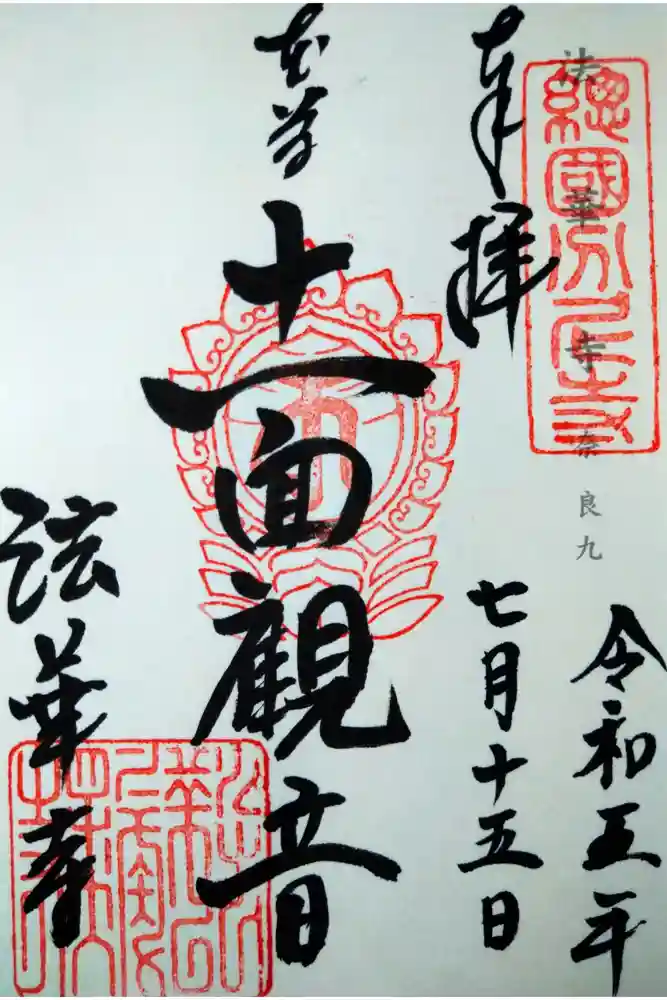 法華寺 奈良九
總國分尼寺
奉拝
令和五年
七月十五日
本尊
十一面觀音
法華寺